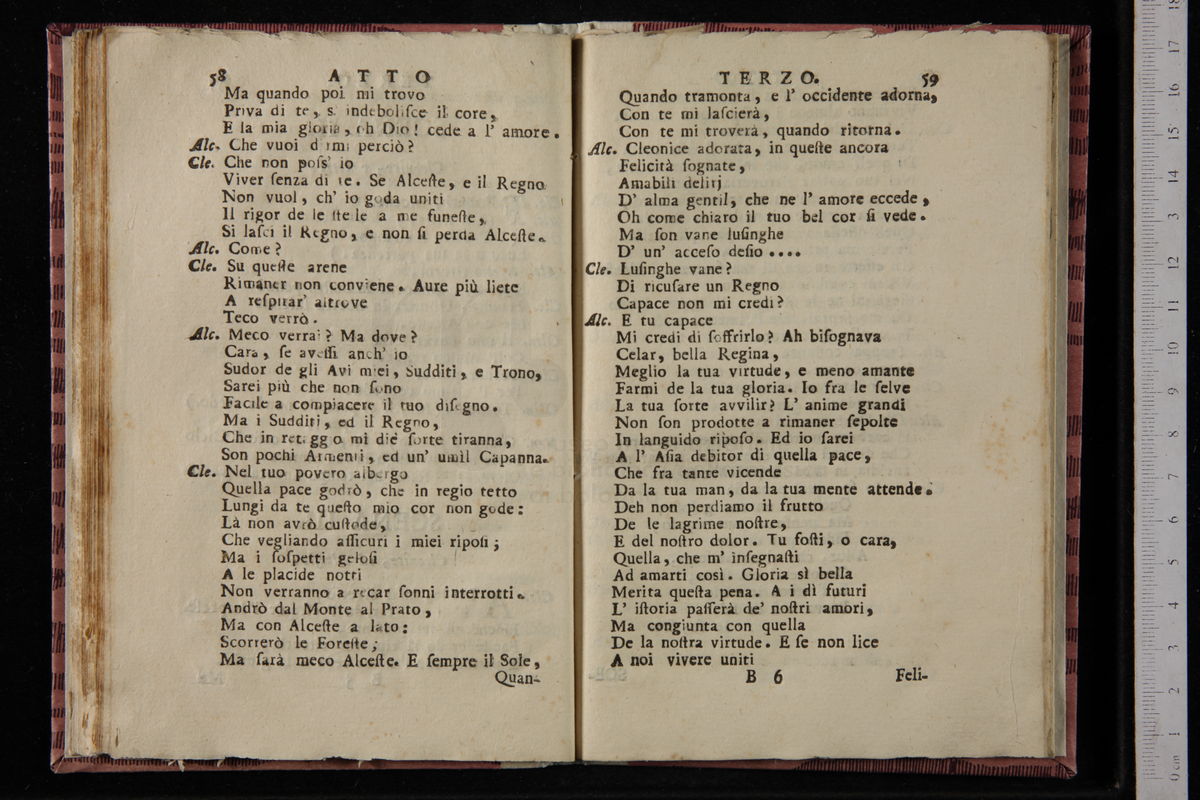 58 ATTO
Ma quando poi mi trovo
Priva di te, s' indeboliſce il core,
E la mia gloria, oh Dio! cede a l' amore.
Alc. Che vuoi dirmi perciò?
Cle. Che non poſs' io
Viver ſenza di te. Se Alceſte, e il Regno
Non vuol, ch' io goda uniti
Il rigor de le ſtelle a me funeſte,
Si laſci il Regno, e non ſi perda Alceſte.
Alc. Come?
Cle. Su queſte arene
Rimaner non conviene. Aure più liete
A reſpirar' altrove
Teco verrò.
Alc. Meco verrai? Ma dove?
Cara, ſe aveſſi anch' io
Sudor de gli Avi miei, Sudditi, e Trono,
Sarei più che non ſono
Facile a compiacere il tuo diſegno.
Ma i Sudditi, ed il Regno,
Che in retaggio mi diè ſorte tiranna,
Son pochi Armenti, ed un' umil Capanna.
Cle. Nel tuo povero albergo
Quella pace godrò, che in regio tetto
Lungi da te queſto mio cor non gode:
Là non avrò cuſtode,
Che vegliando aſſicuri i miei ripoſi;
Ma i ſoſpetti geloſi
A le placide notti
Non verranno a recar ſonni interrotti.
Andrò dal Monte al Prato,
Ma con Alceſte a lato:
Scorrerò le Foreſte;
Ma ſarà meco Alceſte. E ſempre il Sole,
Quan-
TERZO. 59
Quando tramonta, e l' occidente adorna,
Con te mi laſcierà,
Con te mi troverà, quando ritorna.
Alc. Cleonice adorata, in queſte ancora
Felicità ſognate,
Amabili delirj
D' alma gentil, che ne l' amore eccede,
Oh come chiaro il tuo bel cor ſi vede.
Ma ſon vane luſinghe
D' un' acceſo deſio ....
Cle. Luſinghe vane?
Di ricuſare un Regno
Capace non mi credi?
Alc. E tu capace
Mi credi di ſoffrirlo? Ah biſognava
Celar, bella Regina,
Meglio la tua virtude, e meno amante
Farmi de la tua gloria. Io fra le ſelve
La tua ſorte avvilir? L' anime grandi
Non ſon prodotte a rimaner ſepolte
In languido ripoſo. Ed io ſarei
A l' Aſia debitor di quella pace,
Che fra tante vicende
Da la tua man, da la tua mente attende.
Deh non perdiamo il frutto
De le lagrime noſtre,
E del noſtro dolor. Tu foſti, o cara,
Quella, che m' inſegnaſti
Ad amarti così. Gloria sì bella
Merita queſta pena. A i dì futuri
L' iſtoria paſſerà de' noſtri amori,
Ma congiunta con quella
De la noſtra virtude. E ſe non lice
A noi vivere uniti
B 6 Feli-